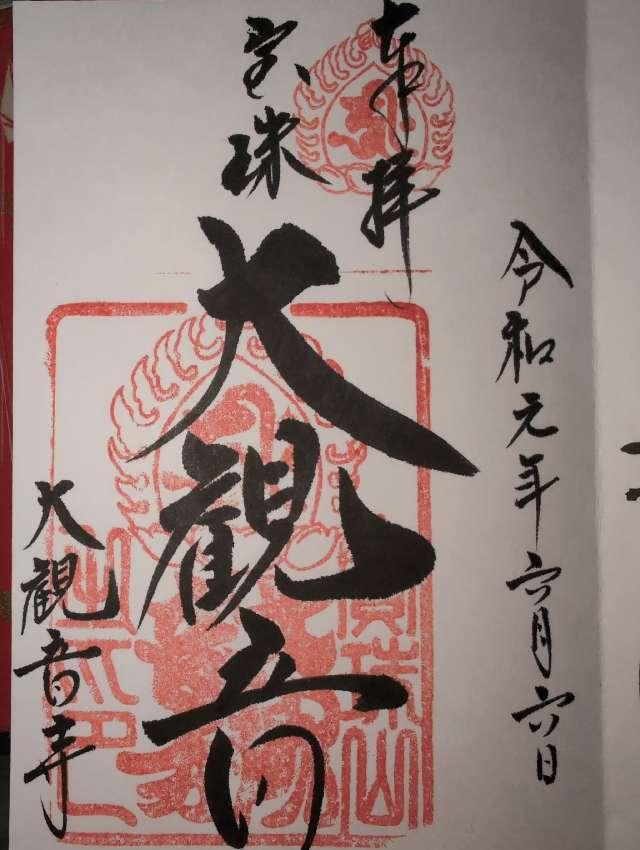 令和元年六月六日
奉拝
宝珠
大観音
大観音寺